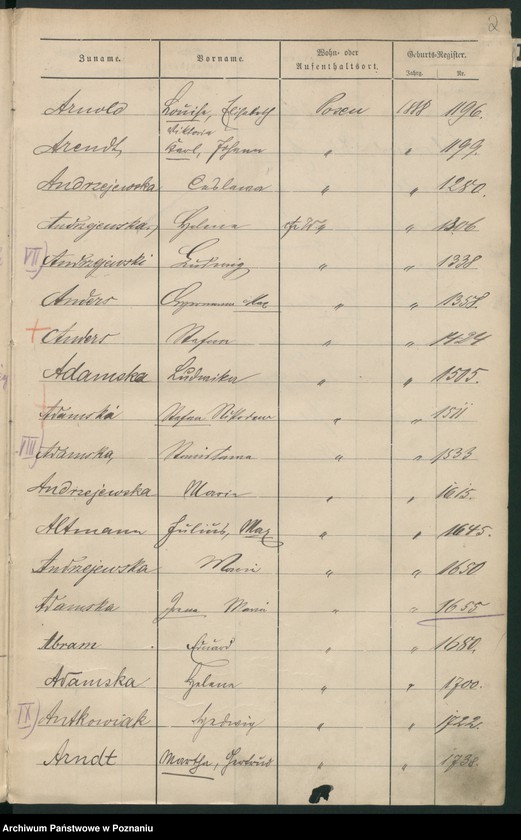 2
Zuname. Vorname. Wohn- oder Aufenthaltsort. Geburts-Register.
Jahrg. Nr.
Arnold Louise, Elisabeth Posen 1888 1196.
Viktoria
Arendt Karl, Johann " " 1199.
Andrzejewska Caslawa " " 1280.
Andrzejewska, Helene " " 1306
VII) Andrzejewski Ludwig " " 1338
Anders Hermann Max " " 1358.
+ Anders Stefan " " 1424
Adamska Ludwika " " 1505.
+ Adamska Stefan Nikodem " " 1511
VIII) Adamska, Stanislawa " " 1533
Andrzejewska Marie " " 1615.
Altmann Julius, Max " " 1645.
Andrzejewska Marie " " 1650
Adamska Irena Maria " " 1655
Abram Eduard " " 1680.
Adamska Helene " " 1700.
IX) Antkowiak Hedwig " " 1722.
Arndt Martha, Gertrud " " 1738.
Archiwum Państwowe w Poznaniu